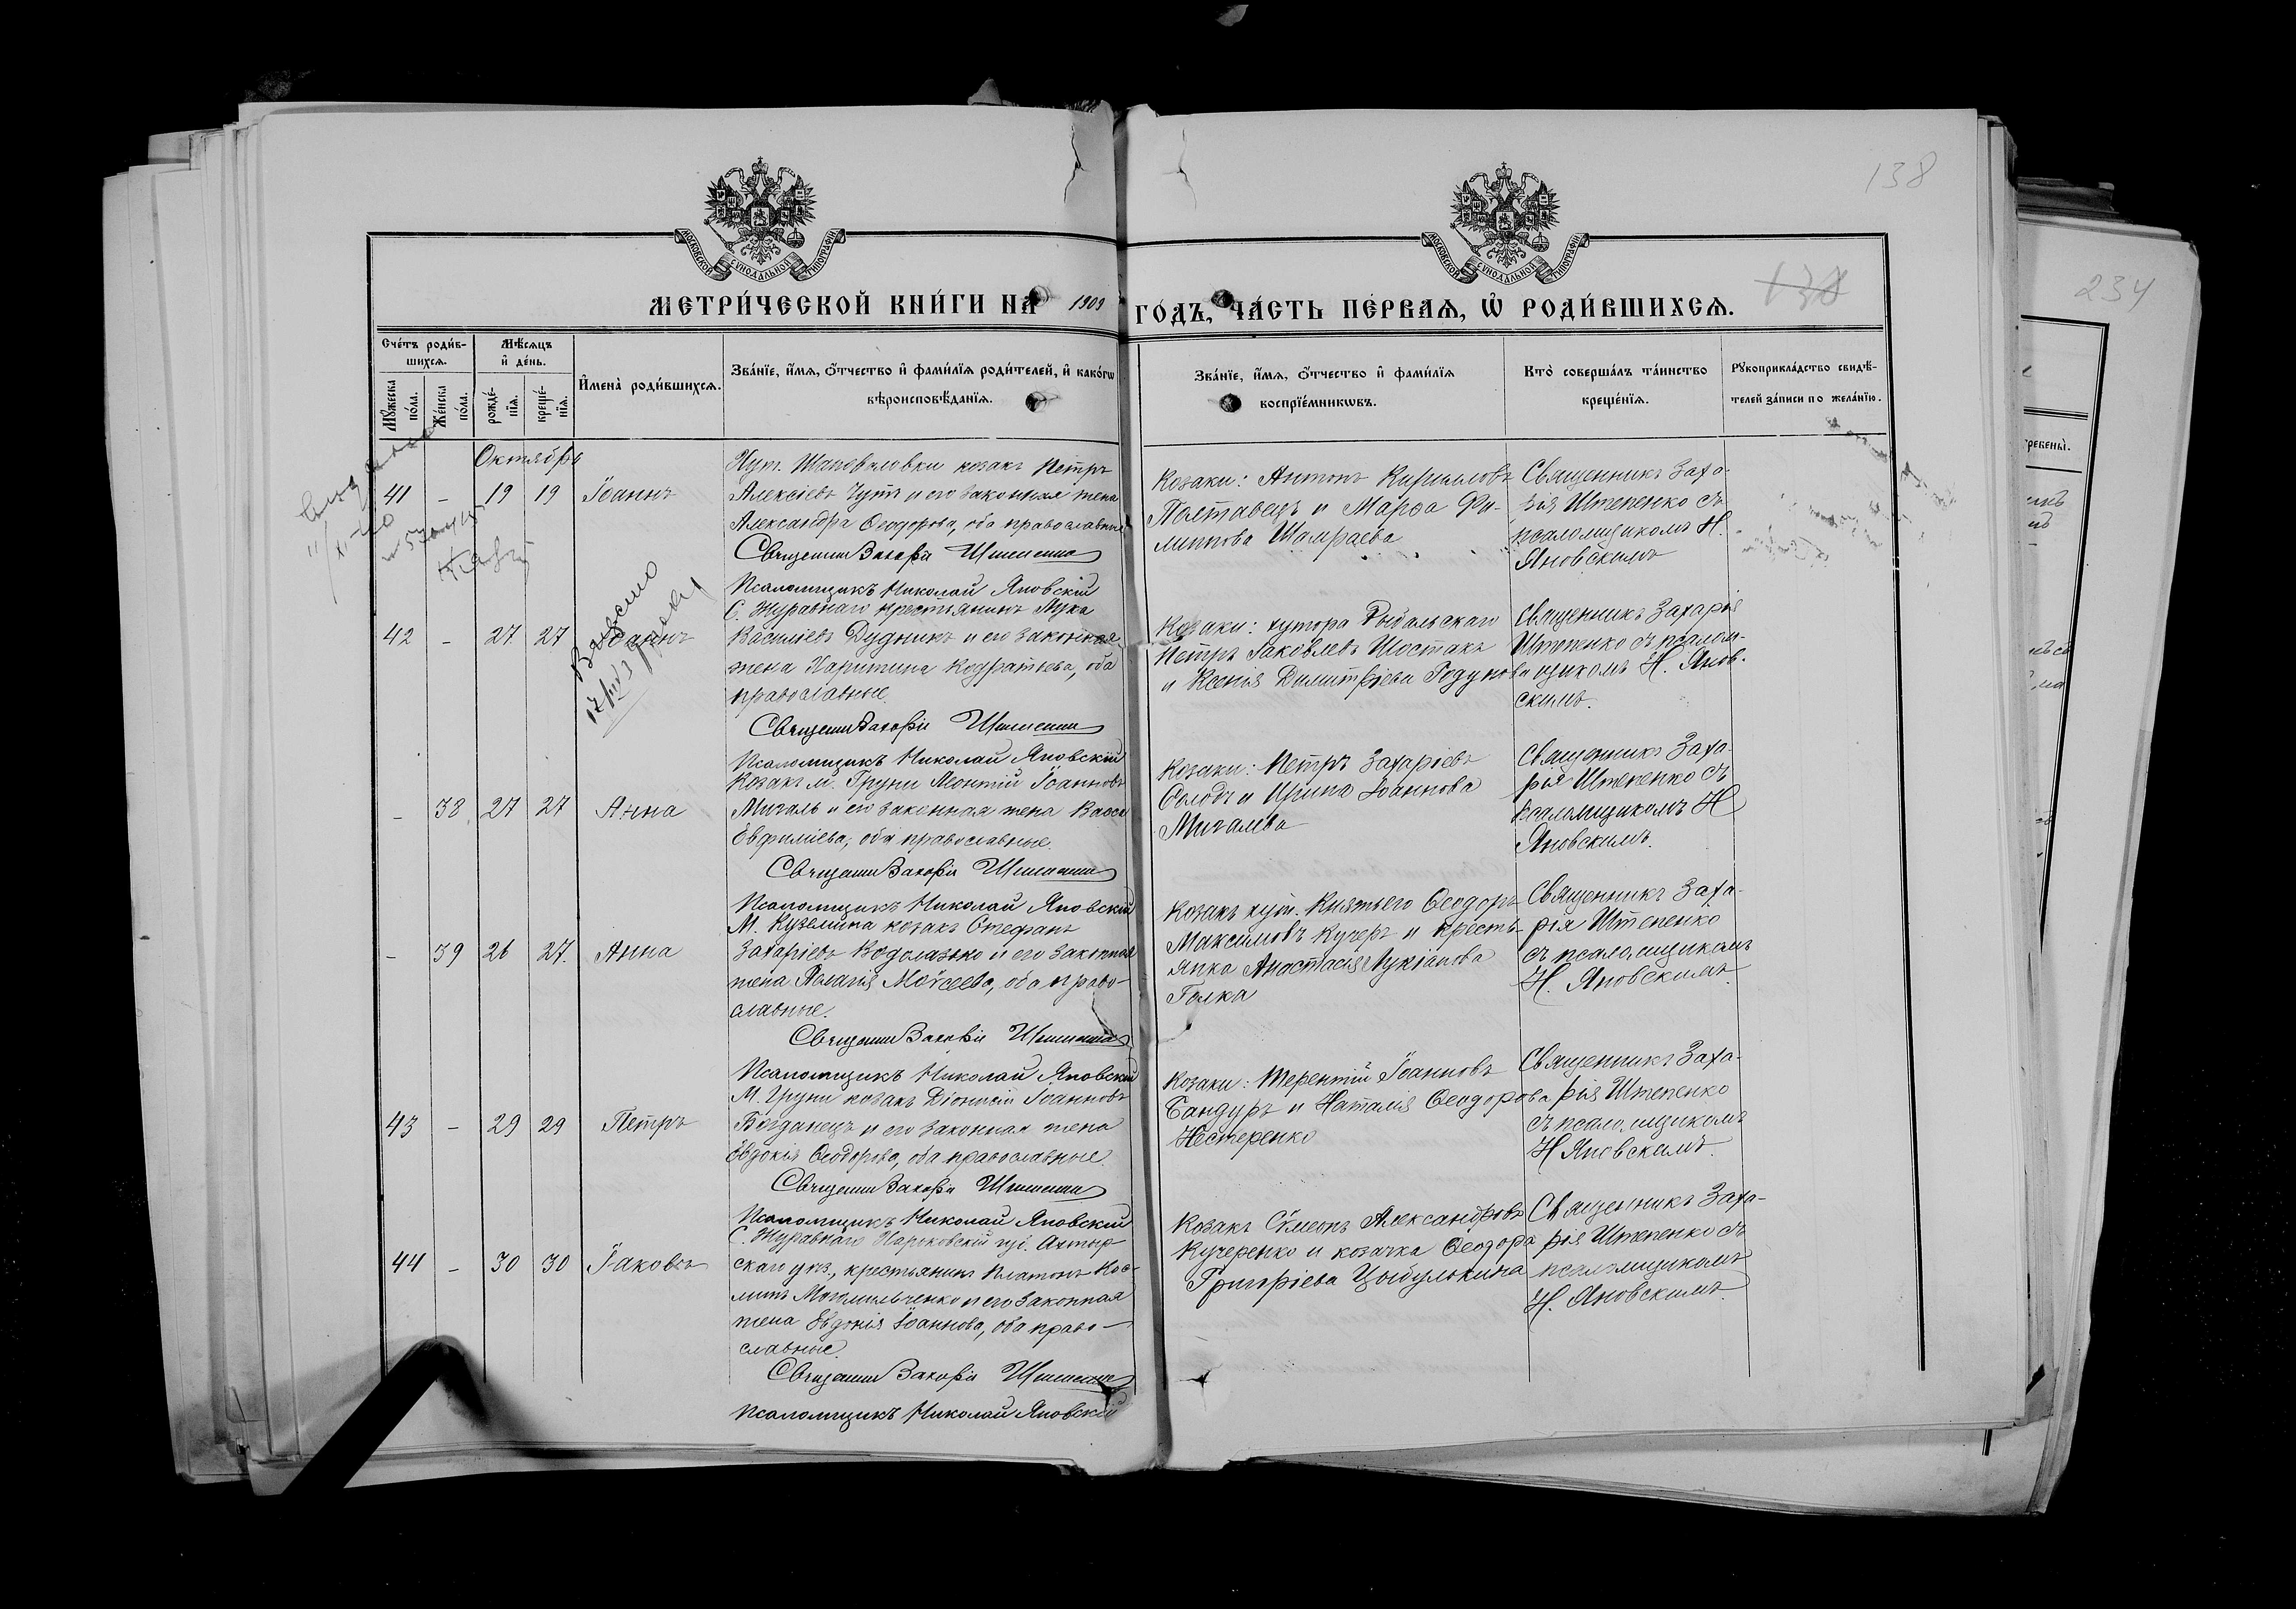 138
МОСКОВСКОЙ СѴНОДАЛЬНОЙ ТИПОГРАФІИ
МОСКОВСКОЙ СѴНОДАЛЬНОЙ ТИПОГРАФІИ
МЕТРИ́ЧЕСКОЙ КНИ́ГИ НА 1909 ГО́ДЪ, ЧА́СТЬ ПЕ́РВАѦ, Ѡ҆ РОДИ́ВШИХСѦ.
138
234
Сче́тъ роди́в-
шихсѧ.
Мꙋ́жеска по́ла.
Же́нска по́ла.
Мѣ́сѧцъ
и҆ де́нь.
рожде́-
нїѧ.
креще́-
нїѧ.
И҆мена̀ роди́вшихсѧ.
Зва́нїе, и҆́мѧ, ѻ҆́тчество и҆ фами́лїѧ роди́телей, и҆ како́гѡ
вѣроисповѣ́данїѧ.
Зва́нїе, и҆́мѧ, ѻ҆́тчество и҆ фами́лїѧ
воспрїе́мникѡвъ.
Кто̀ соверша́лъ та́инство
креще́нїѧ.
Рꙋкоприкла́дство свидѣ́-
телей за́писи по жела́нїю.
Октябрь
41 - 19 19 Іоаннъ
Хут. Шаповаловки козакъ Петръ
Алексіевъ Чутъ и его законная жена
Александра Ѳеодорова, оба православные
Священникъ Захарія Штепенко
Псаломщикъ Николай Яновскій
Козаки: Антонъ Кирилловъ
Полтавецъ и Марѳа Фи-
липпова Шамраева
Священникъ Заха-
рія Штепенко съ
псаломщикомъ Н.
Яновскимъ
42 - 27 27 Іоаннъ
С. Журавнаго крестьянинъ Лука
Василіевъ Дудникъ и его законная
жена Харитина Кодратьева, оба
православные.
Священникъ Захарія Штепенко
Псаломщикъ Николай Яновскій
Козаки: хутора Рыбальскаго
Петръ Іаковлевъ Шостакъ
и Ксенія Димитріева Годунова
Священникъ Захарія
Штепенко съ псалом-
щикомъ Н. Янов-
скимъ.
- 38 27 27 Анна
Козакъ м. Груни Леонтій Іоанновъ
Мигаль и его законная жена Васса
Евфиміева, оба православные.
Священникъ Захарія Штепенко
Псаломщикъ Николай Яновскій
Козаки: Петръ Захаріевъ
Солодъ и Ирина Іоаннова
Мигалева
Священникъ Заха-
рія Штепенко съ
псаломщикомъ Н
Яновскимъ.
- 39 26 27. Анна
М. Куземина козакъ Стефанъ
Захаріевъ Водолазько и его законная
жена Пелагія Моѵсеева, оба право-
славные.
Священникъ Захарія Штепенко
Псаломщикъ Николай Яновскій
Козакъ хут. Княжьего Ѳеодоръ
Максимовъ Кучеръ и кресть-
янка Анастасія Лукіанова
Голка
Священникъ Заха-
рія Штепенко
съ псаломщикомъ
Н. Яновскимъ.
43 - 29 29 Петръ
М. Груни козакъ Діонисій Іоанновъ
Богданецъ и его законная жена
Евдокія Ѳеодорова, оба православные.
Священникъ Захарія Штепенко
Псаломщикъ Николай Яновскій
Козаки: Терентій Іоанновъ
Бандуръ и Наталія Ѳеодорова
Нестеренко
Священникъ Заха-
рія Штепенко
съ псаломщикомъ
Н Яновскимъ.
44 - 30 30 Іаковъ
С. Журавнаго Харьковскій губ. Ахтыр-
скаго уѣз., крестьянинъ Платонъ Кос-
минъ и его законная
жена Евдокія Іоаннова, оба право-
славные.
Священникъ Захарія Штепенко
Псаломщикъ Николай Яновскій
Козакъ Сѵмеонъ Александровъ
Кучеренко и козачка Ѳеодора
Григоріева Цыбулькина
Священникъ Заха-
рія Штепенко съ
псаломщикомъ
Н. Яновскимъ.